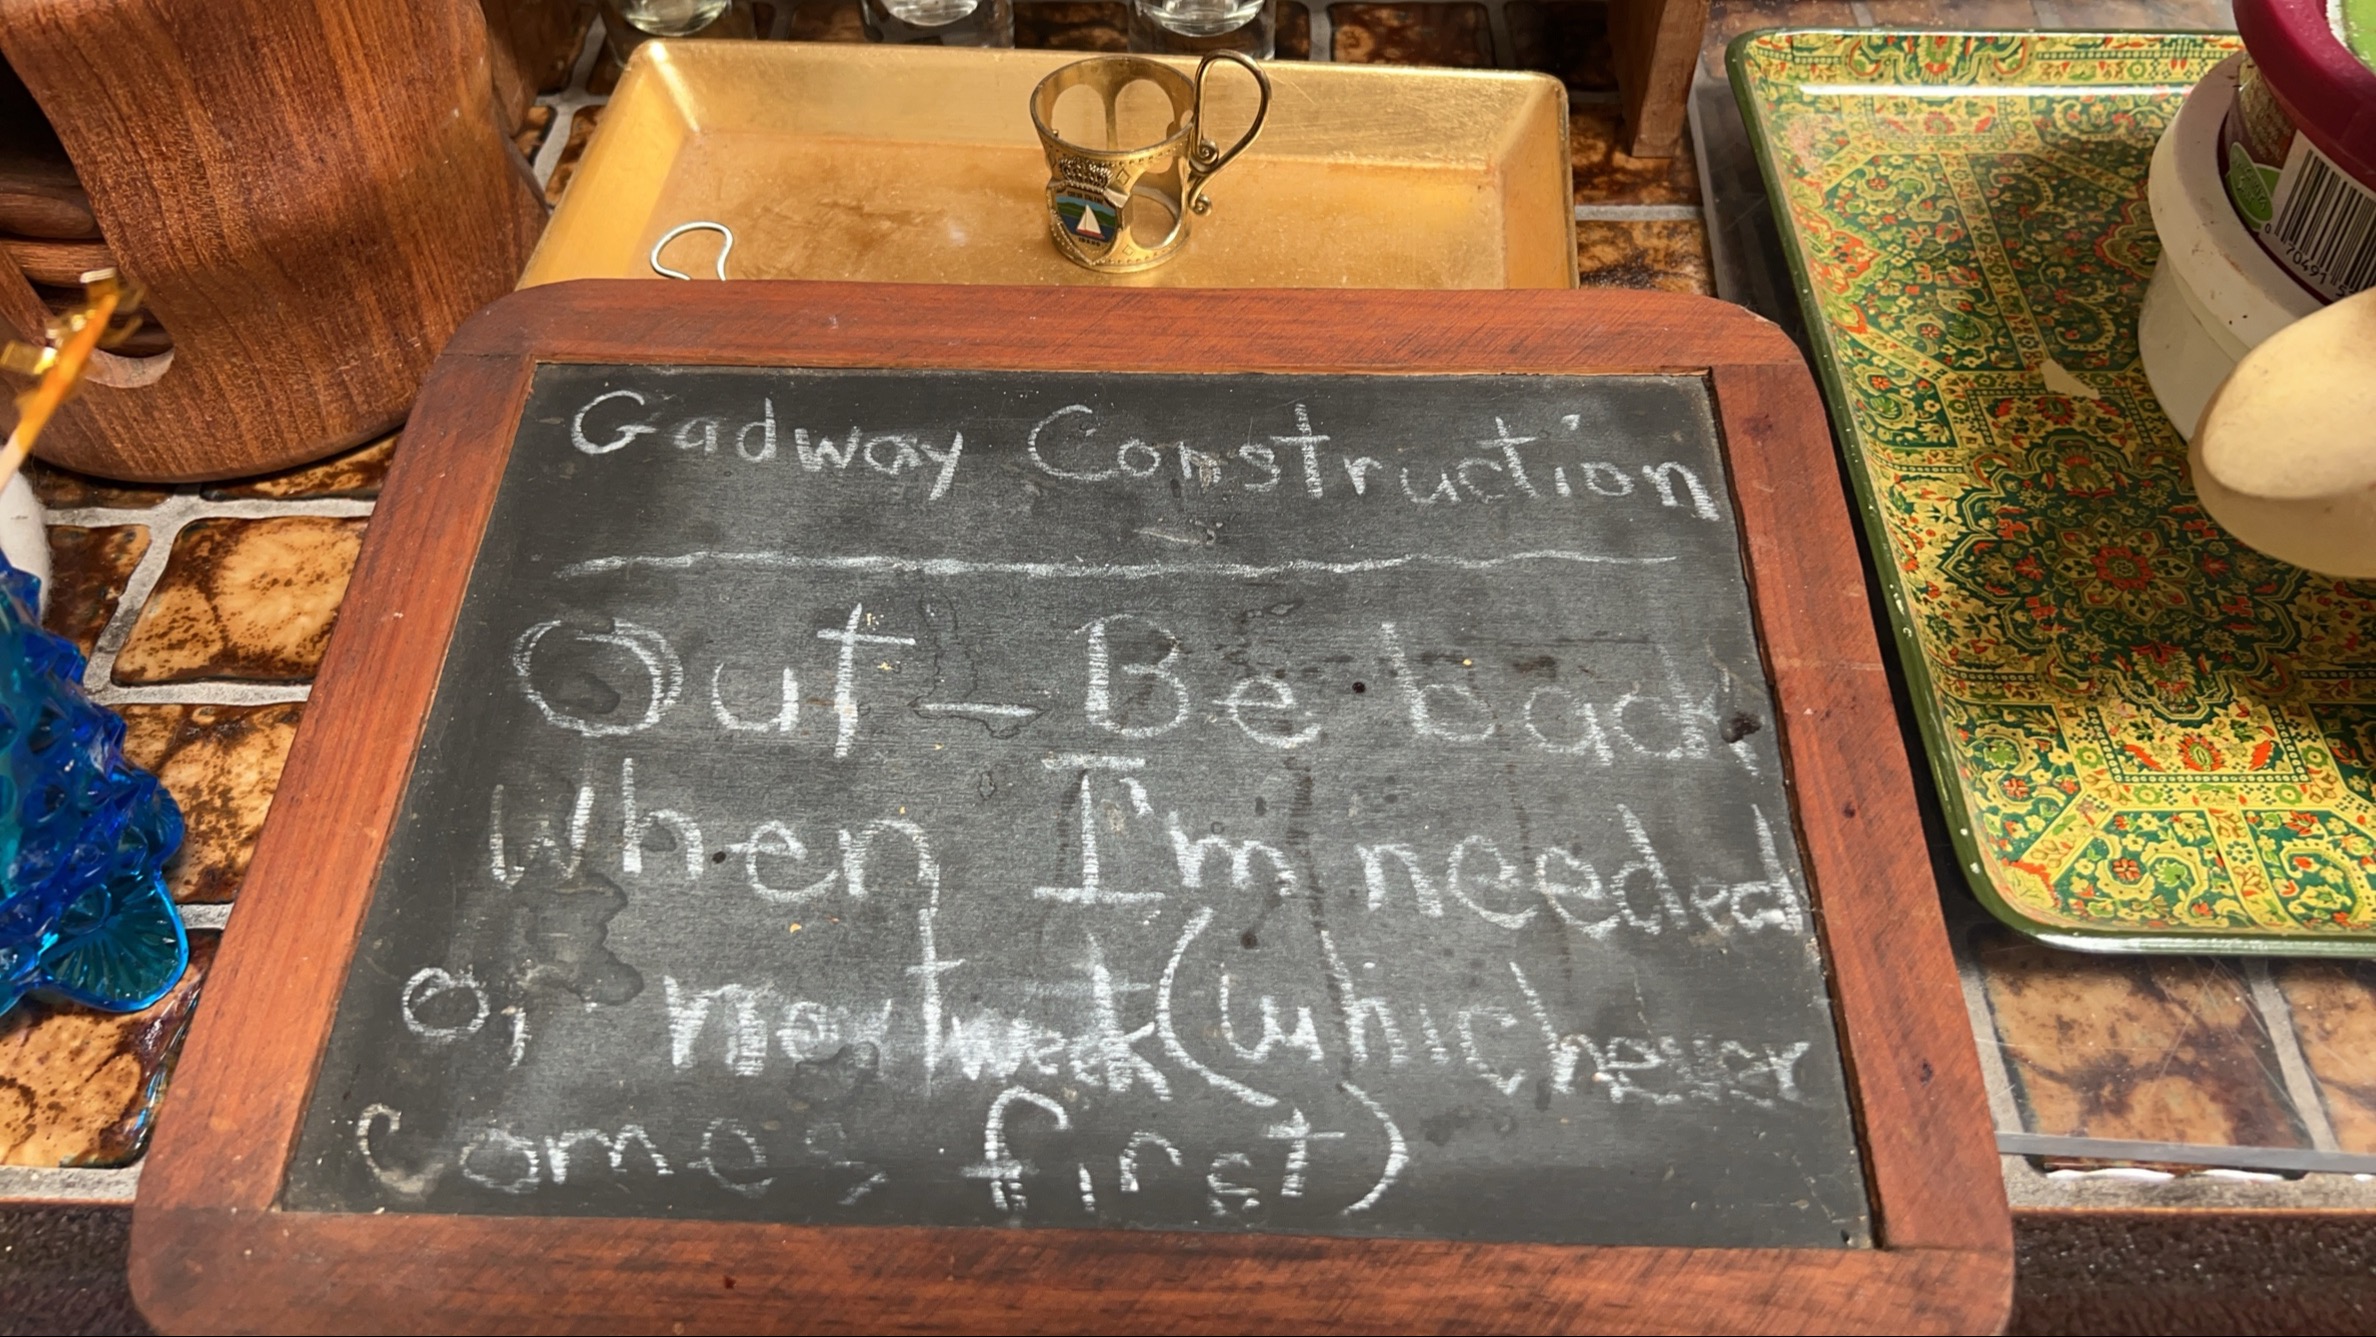 Gadway Construction
Out - Be back
when I'm needed
or next week (whichever
comes first)
0 70491